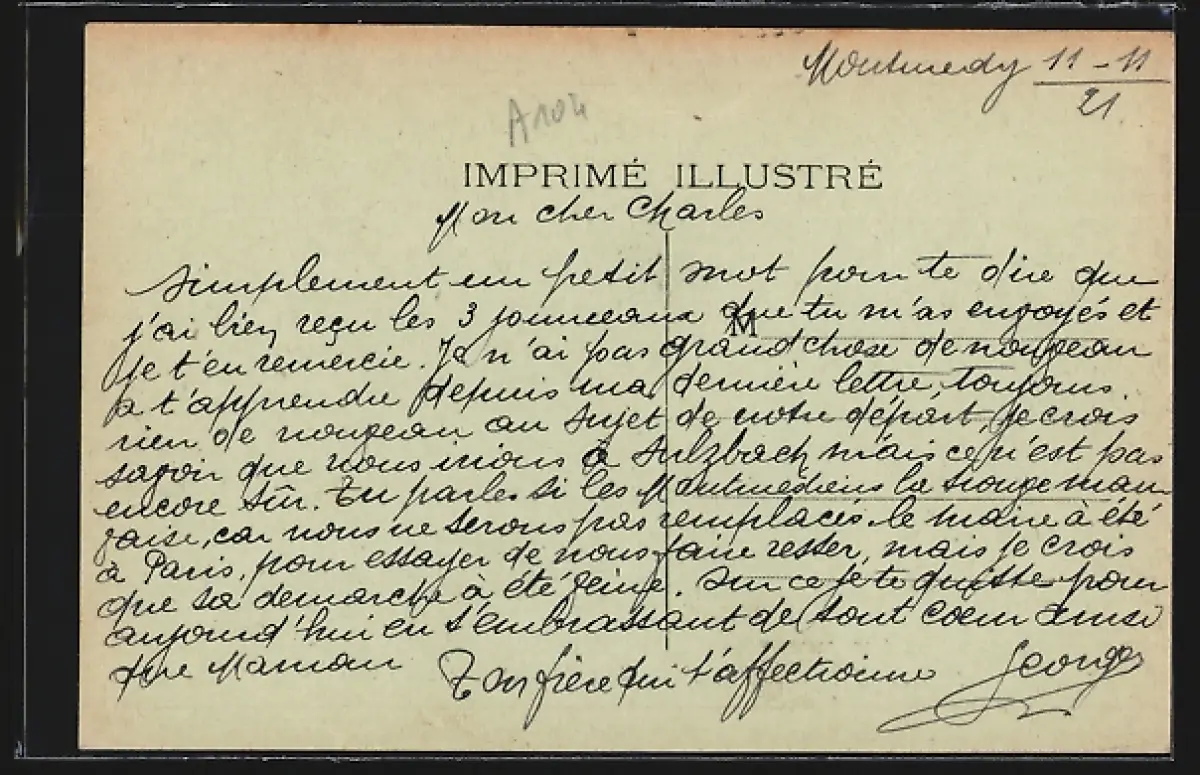 Montmedy 11-11
21
A104
IMPRIMÉ ILLUSTRÉ
Mon cher Charles
M
Simplement un petit mot pour te dire que
j'ai bien reçu les 3 journeaux que tu m'as envoyés et
je t'en remercie. Je n'ai pas grand chose de nouveau
a t'apprendre depuis ma dernière lettre, toujours
rien de nouveau au sujet de notre départ, je crois
savoir que nous irions à Sulzbach mais ce n'est pas
encore sûr. Tu parles si les Montmédiens la trouve mau-
vaise, car nous ne serons pas remplacés. le maire à été
à Paris, pour essayer de nous faire rester, mais je crois
que sa demarche à été veine. Sur ce je te quitte pour
aujourd'hui en t'embrassant de tout coeur ainsi
que Maman
Ton frère qui t'affectionne
Georges